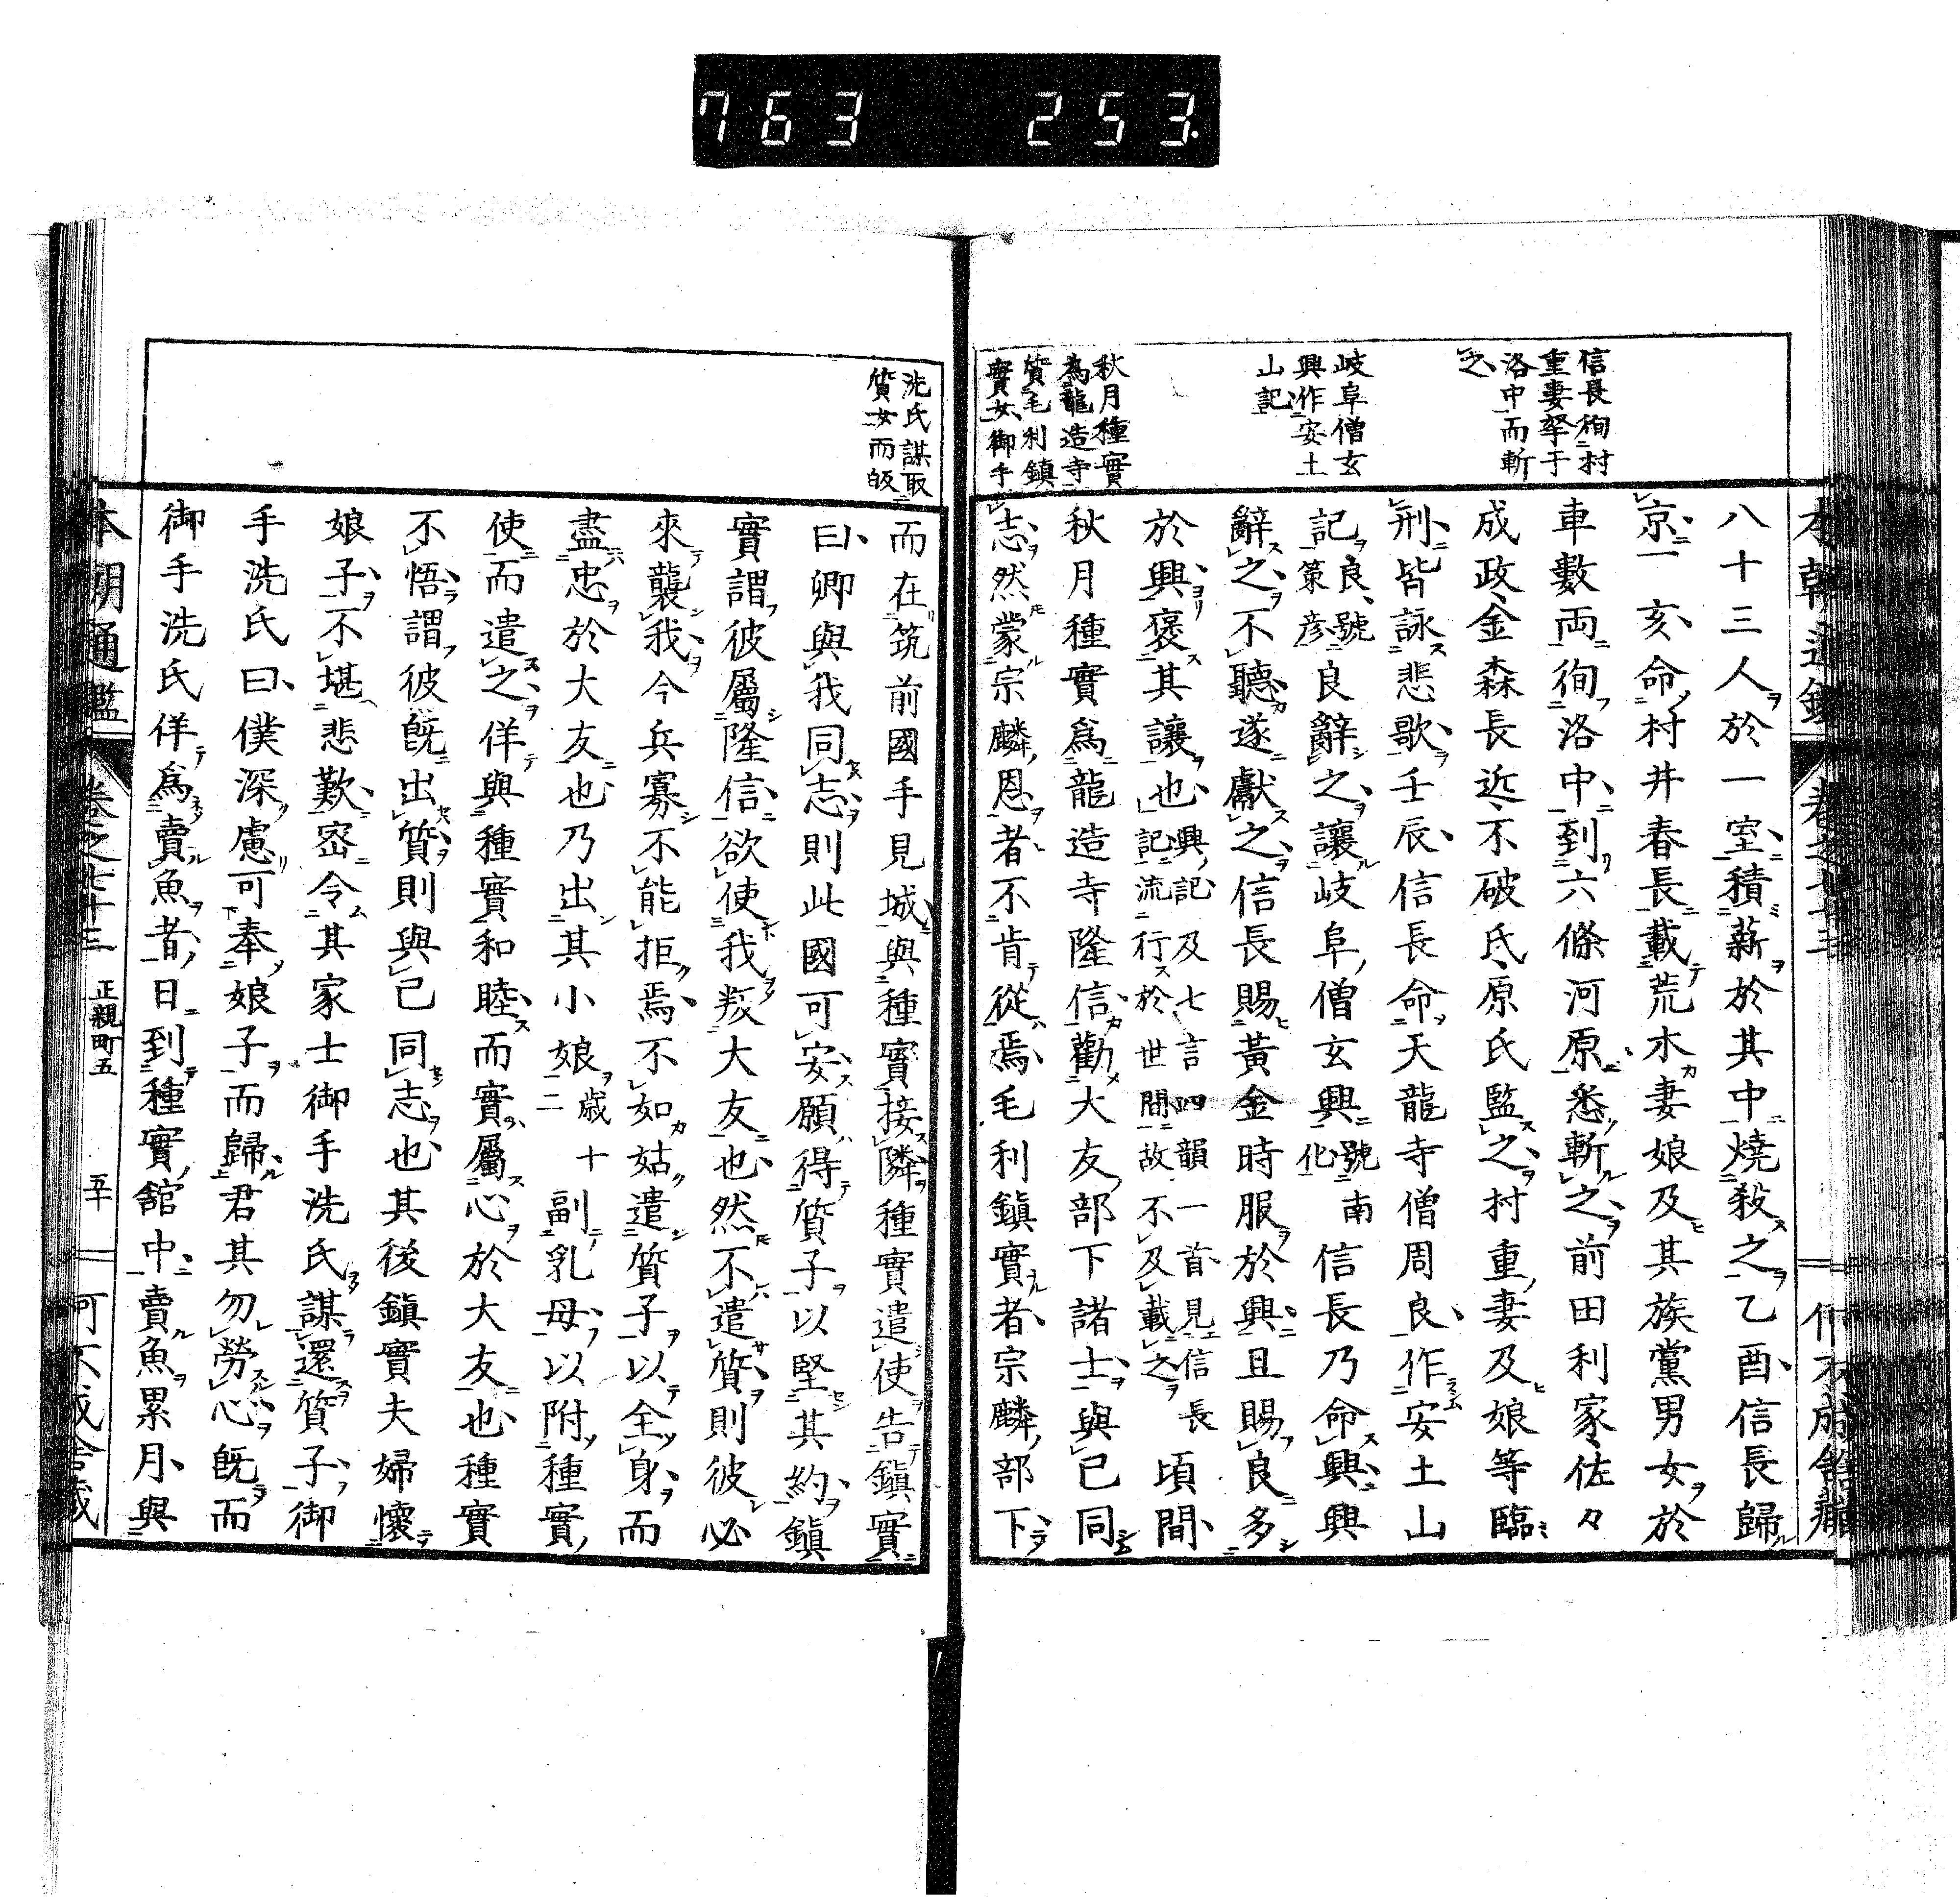 763 253
信長徇村
重妻孥于
洛中而斬
之
岐阜僧玄
興作安土
山記
秋月種實
為龍造寺
質毛利鎮
實女御手
八十三人於一室積薪於其中燒殺之乙酉信長歸
京一亥命村井春長載荒木妻娘及其族黨男女於
車數両徇洛中到六條河原悉斬之前田利家佐々
成政金森長近不破氏原氏監之村重妻及娘等臨
刑皆詠悲歌壬辰信長命天龍寺僧周良作安土山
記良號策彦良辭之讓岐阜僧玄興號南化信長乃命興興
辭之不聽遂獻之信長賜黃金時服於興且賜良多
於興褒其讓也興記及七言四韻一首見信長記流行於世間故不及載之頃間
秋月種實爲龍造寺隆信勸大友部下諸士與己同
志然蒙宗麟恩者不肯從焉毛利鎮實者宗麟部下
本朝通鑑 卷之七十三
洗氏謀取
質女而皈
而在筑前國手見城與種實接隣種實遣使告鎮實
曰卿與我同志則此國可安願得質子以堅其約鎮
實謂彼屬隆信欲使我叛大友也然不遣質則彼必
來襲我今兵寡不能拒焉不如姑遣質子以全身而
盡忠於大友也乃出其小娘歳十二副乳母以附種實
使而遣之佯與種實和睦而實屬心於大友也種實
不悟謂彼既出質則與己同志也其後鎮實夫婦懷
娘子不堪悲歎密令其家士御手洗氏謀還質子御
手洗氏曰僕深慮可奉娘子而歸君其勿勞心既而
御手洗氏佯爲賣魚者日到種實舘中賣魚累月與
本朝通鑑 卷之七十三 正親町五 五十